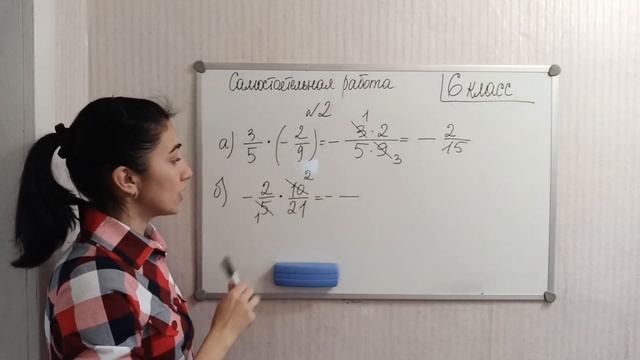 Самостоятельная работа
6 класс
№2
а) 3/5 · (- 2/9) = - (3 · 2)/(5 · 9) = - 2/15
1
3
б) - 2/5 · 10/21 = - —
2
1